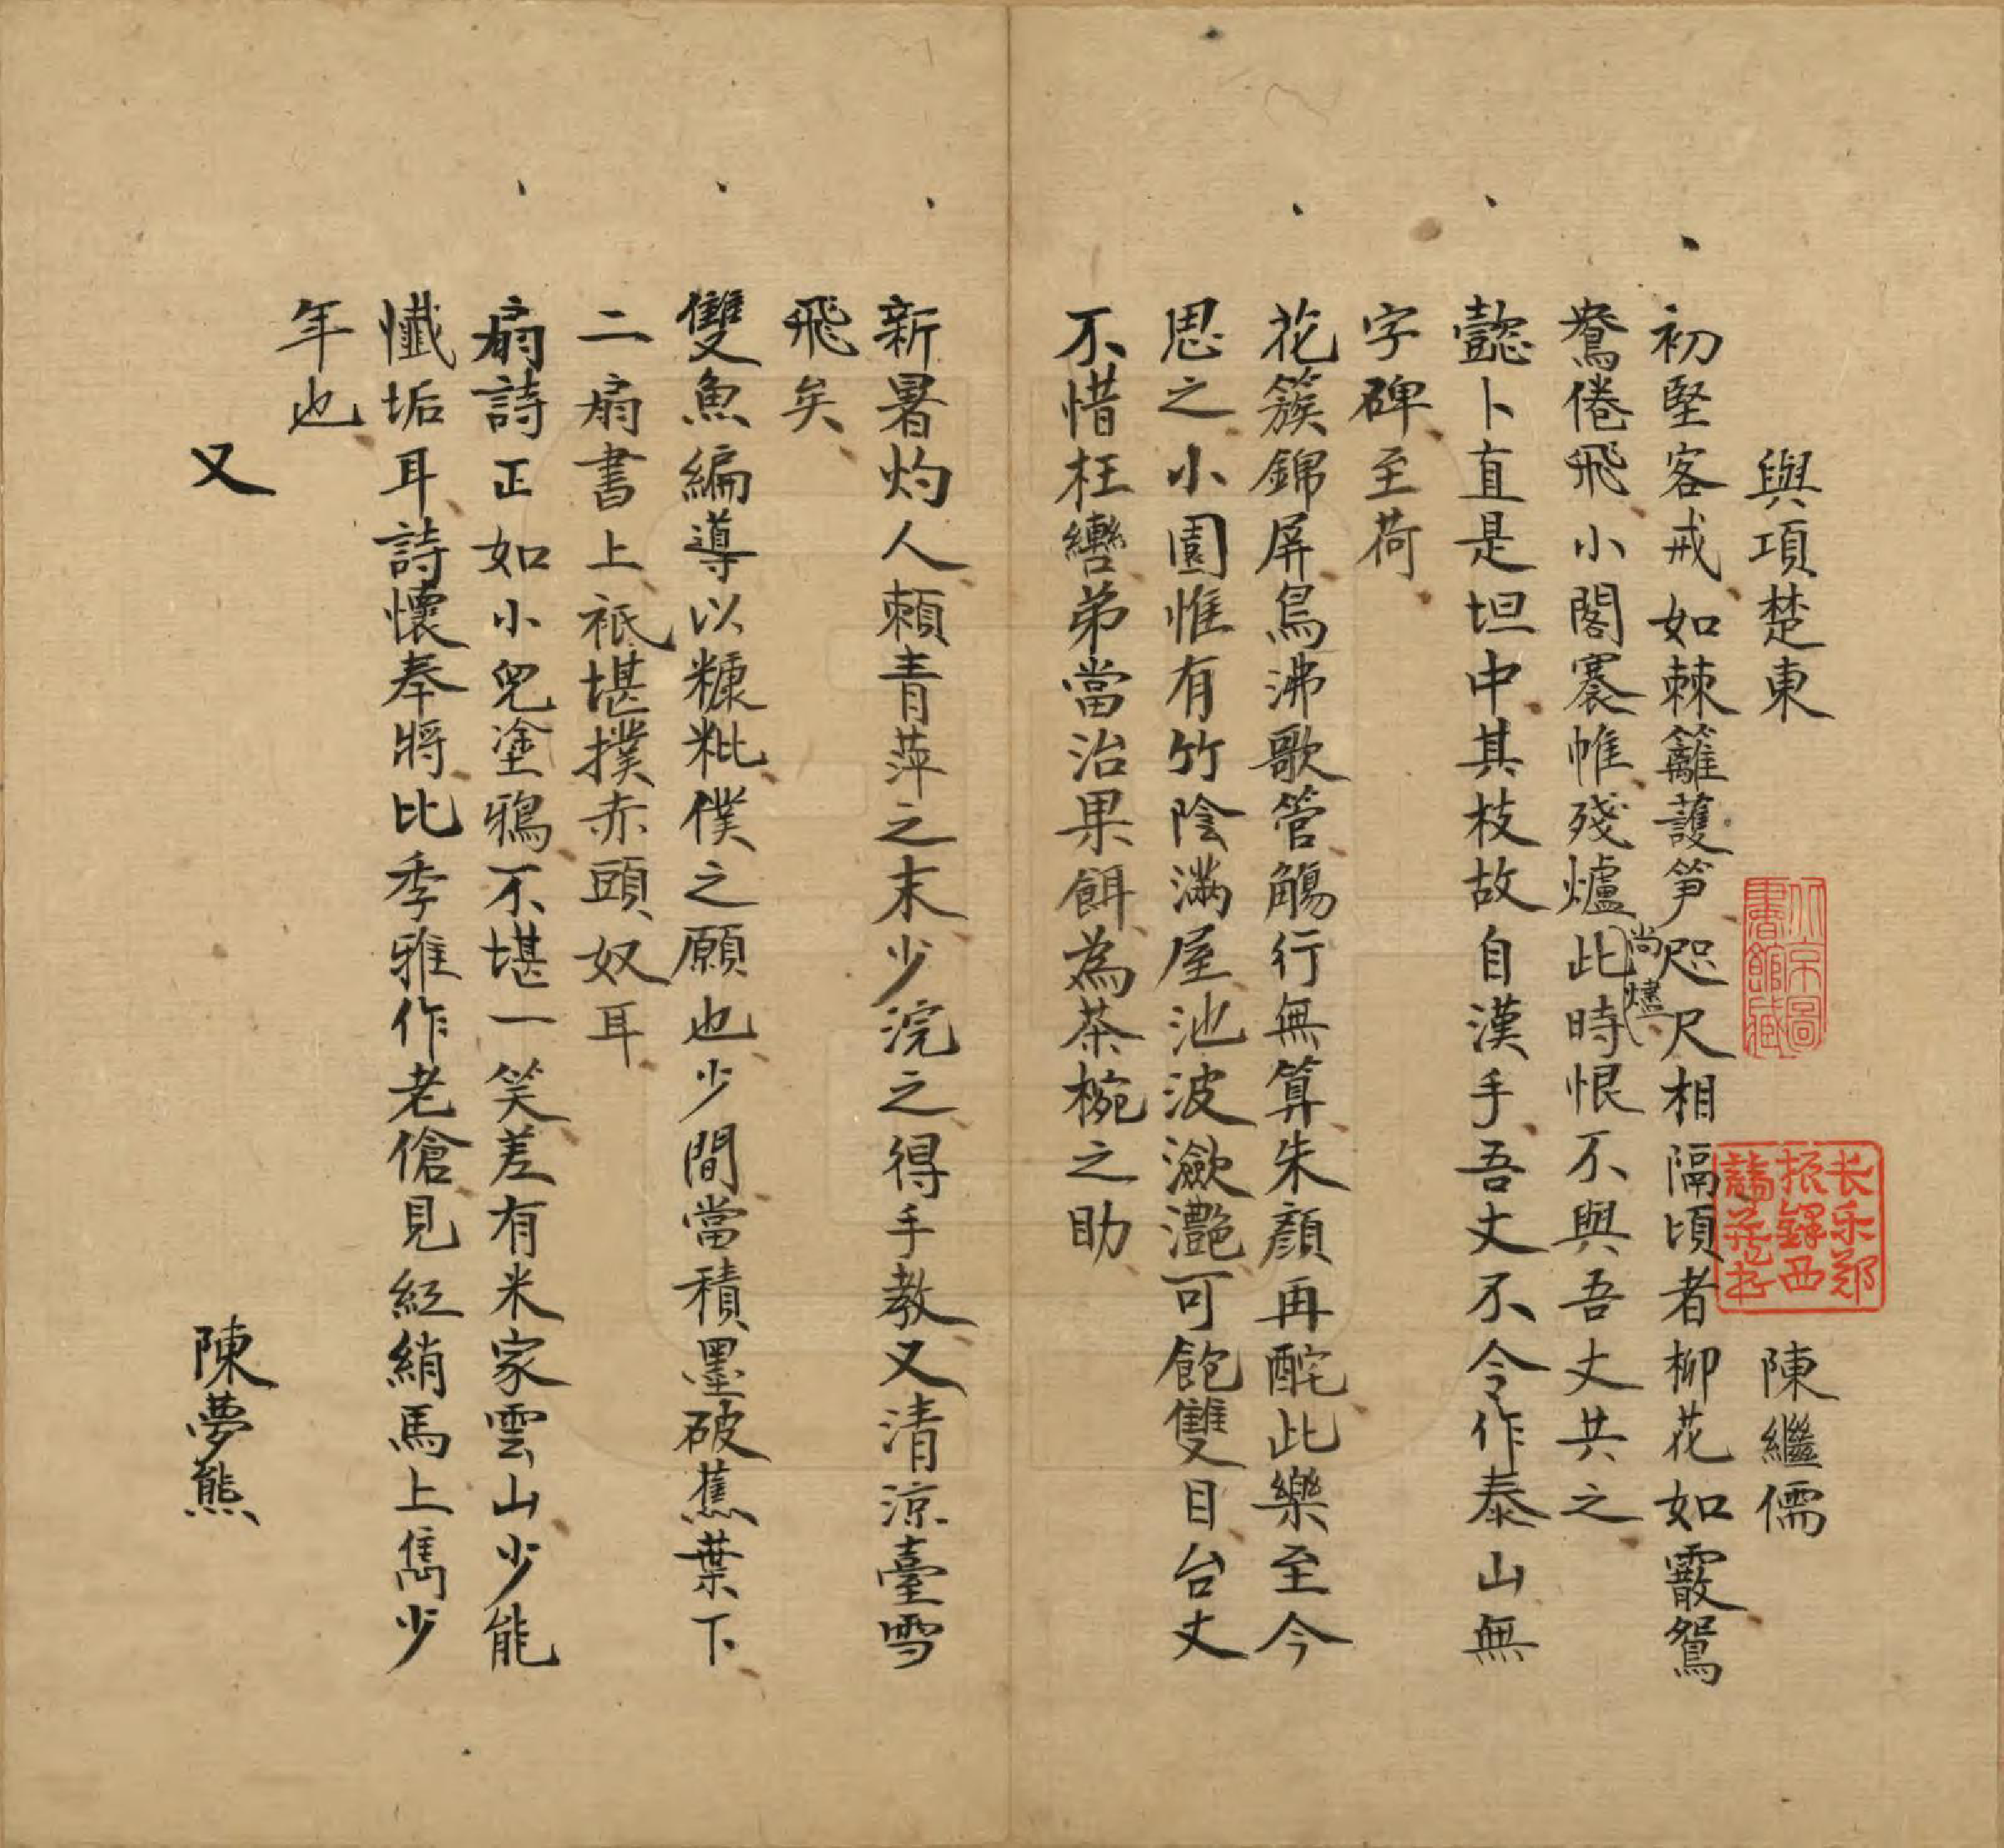 與項楚東 陳繼儒
初堅客戒如棘籬護笋咫尺相隔頃者柳花如霰鴛
鴦倦飛小閣褰帷殘爐尚燼此時恨不與吾丈共之
懿卜直是坦中其枝故自漢手吾丈不令作泰山無
字碑至荷
花簇錦屏鳥沸歌管觴行無算朱顏再酡此樂至今
思之小園惟有竹陰滿屋池波瀲灧可飽雙目台丈
不惜枉轡弟當治果餌為茶椀之助
新暑灼人賴青萍之末少浣之得手教又清涼臺雪
飛矣
雙魚編導以糠粃僕之願也少間當積墨破蕉葉下
二扇書上祇堪撲赤頭奴耳
扇詩正如小兒塗鴉不堪一笑差有米家雲山少能
懺垢耳詩懷奉將比季雅作老傖見紅綃馬上雋少
年也
又 陳夢熊
北京圖書館藏
长乐郑振铎西諦藏书